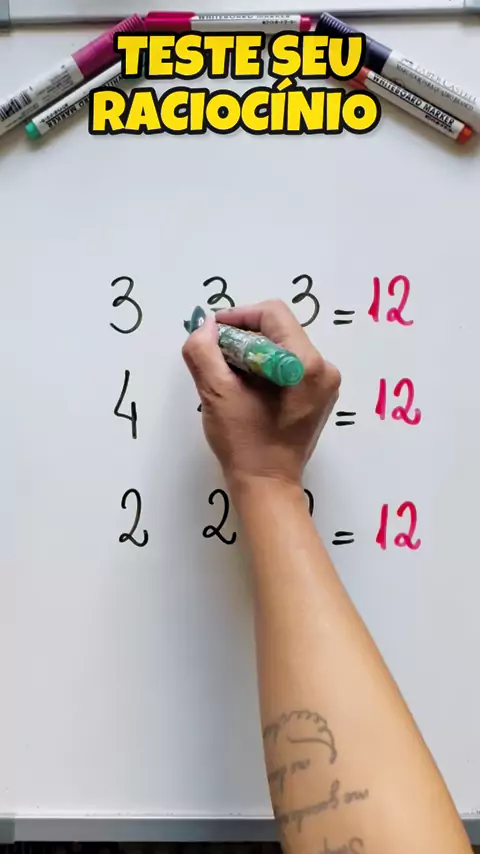 TESTE SEU
RACIOCÍNIO
WHITEBOARD MARKER
3 3 3 = 12
4 = 12
2 2 = 12